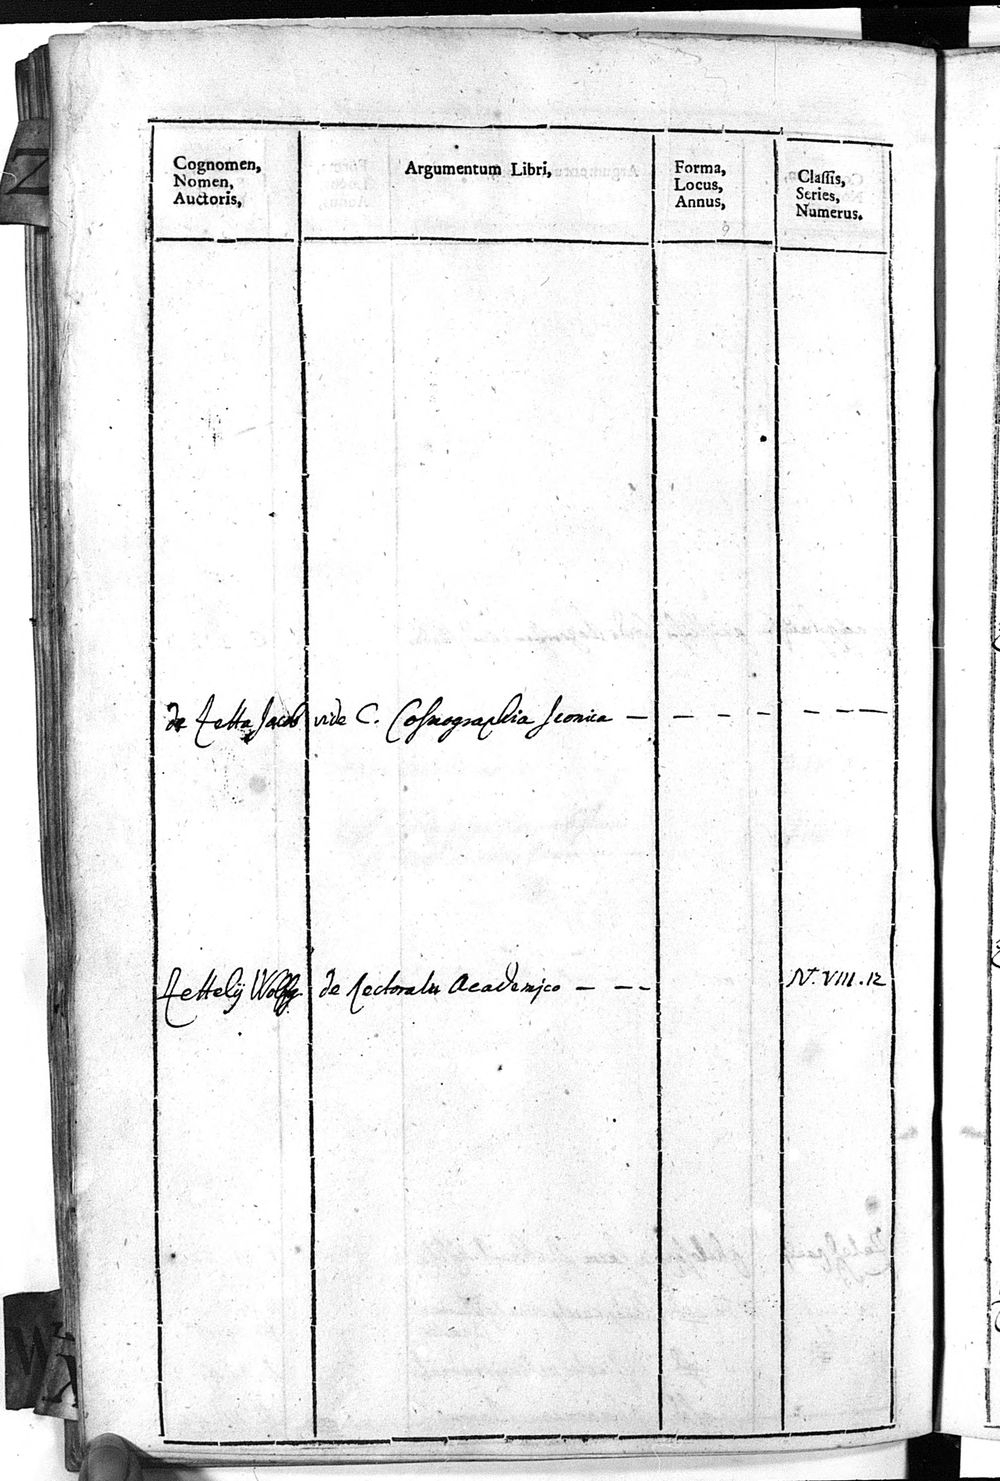 Cognomen,
Nomen,
Auctoris,
Argumentum Libri,
Forma,
Locus,
Annus,
Classis,
Series,
Numerus.
de Zetta Jacob vide C. Cosmographia Iconica — — — — — — —
Zettelij Wolfg. de Rectoratu Academico — — — N. VIII. 12
Z
W
X